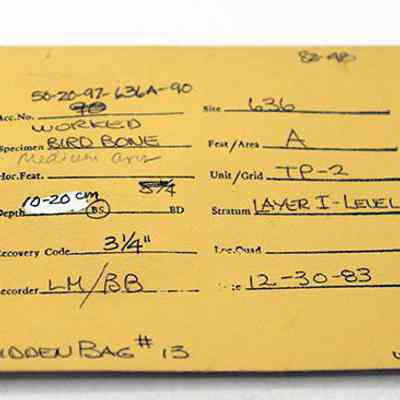 82-48
50-20-97-636A-90
Acc. No. 90 Site 636
WORKED
Specimen BIRD BONE Feat/Area A
Medium Avis
Hor. Feat. Unit/Grid TP-2
5 1/4
10-20 cm
Depth BS BD Stratum LAYER I-LEVEL
Recovery Code 3 1/4" Loc. Quad
Recorder LM/BB 12-30-83
IDDEN BAG # 13